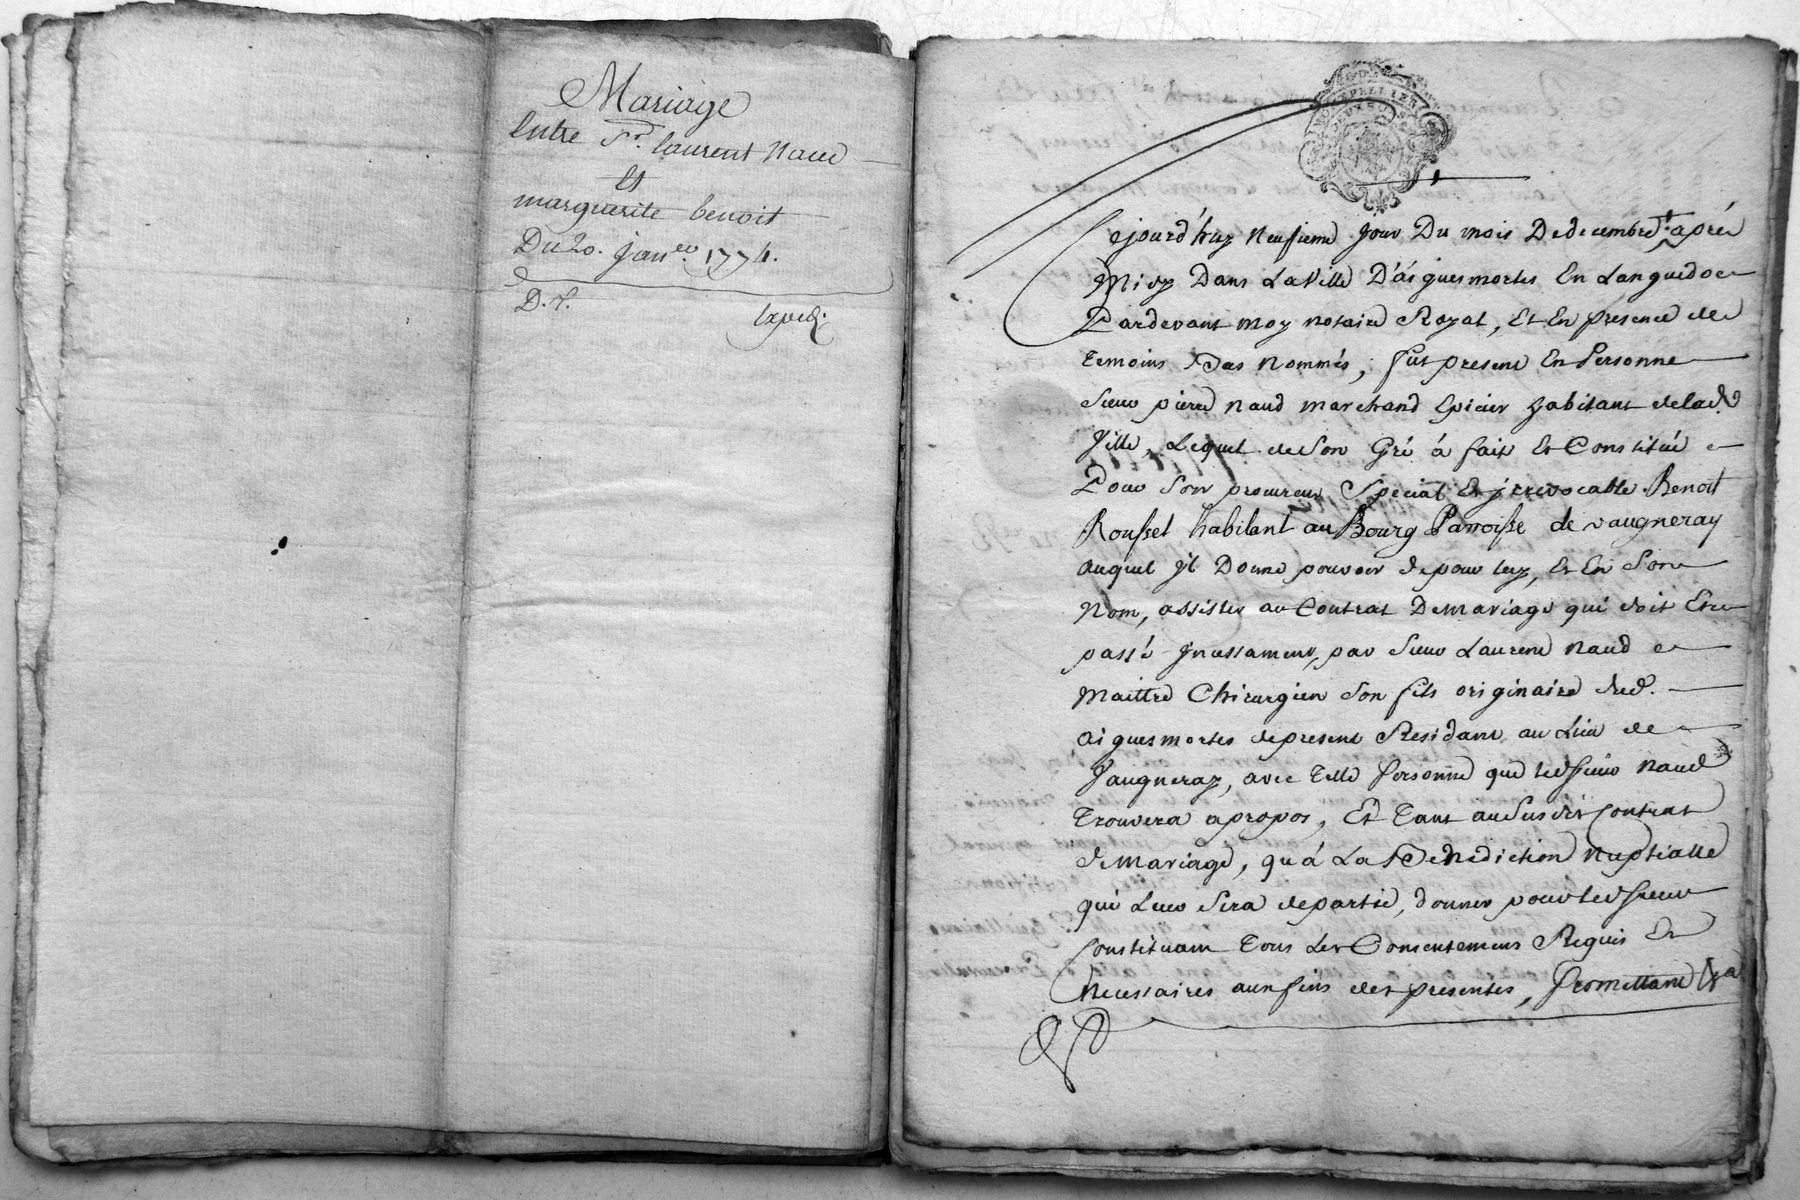 Mariage
Entre Sr. laurent Naud
Et
marguerite benoit
Du 20. janer. 1774.
D. f.
Exped.
MONTPELLIER
Cejourd'huy neufieme jour Du mois De decembre aprés
Midy Dans La Ville D'aiguesmortes En Languedoc
Pardevant moy notaire Royal, Et En presence de
temoins Bas Nommés, fut present En Personne
Sieur pierre naud marchand Epicier habitant de lad.
Ville, Lequel de Son Gré á fait Et Constitué
Pour Son procureur Special Et jrrevocable Benoit
Rousset habitant au Bourg Parroisse de vaugneray
auquel jl Donne pouvoir de pour luy, Et En Son
Nom, assister au Contrat De mariage qui doit Etre
passé jncessament, par Sieur Laurent naud
Maittre Chirurgien Son fils originaire dud.
aiguesmortes de present Residant au Lieu de
Vaugneray, avec telle Personne que led sieur naud
trouvera apropos, Et tant au Susdit Contrat
de mariage, qu'á La Benediction Nuptialle
qui Leur Sera departie, donner pour led sieur
Constituant tous Les Consentemens Requis Et
Necessaires aux fins des presentes, Promettant